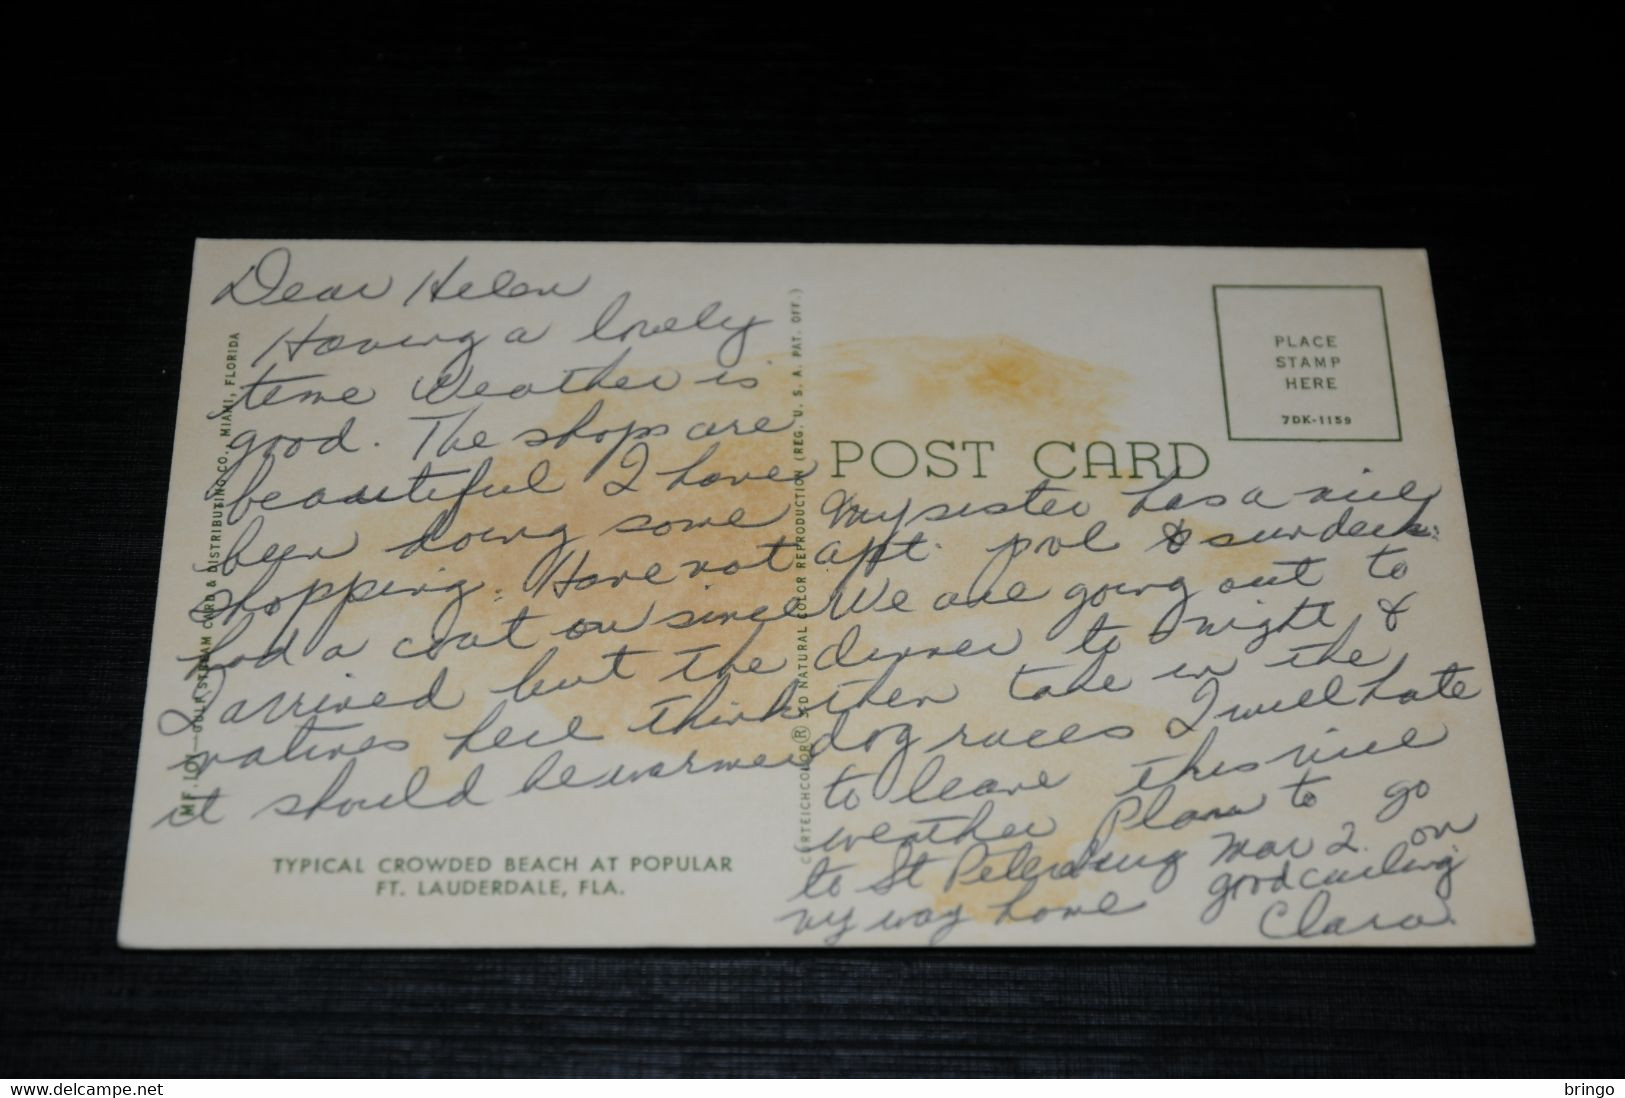 Dear Helen
Having a lovely
time Weather is
good. The shops are
beautiful I have
been doing some
shopping. Have not
had a coat on since
I arrived but the
natives here think
it should be warmer
My sister has a nice
apt. pool & sundeck.
We are going out to
dinner to night &
then take in the
dog races I will hate
to leave this nice
weather Plan to go
to St Petersburg Mar 2 on
my way home good curling
Clara.
POST CARD
PLACE
STAMP
HERE
7DK-1159
TYPICAL CROWDED BEACH AT POPULAR
FT. LAUDERDALE, FLA.
MF. LOY—GULF STREAM CARD & DISTRIBUTING CO. MIAMI, FLORIDA
CURTEICHCOLOR® 3-D NATURAL COLOR REPRODUCTION (REG. U. S. A. PAT. OFF.)
bringo